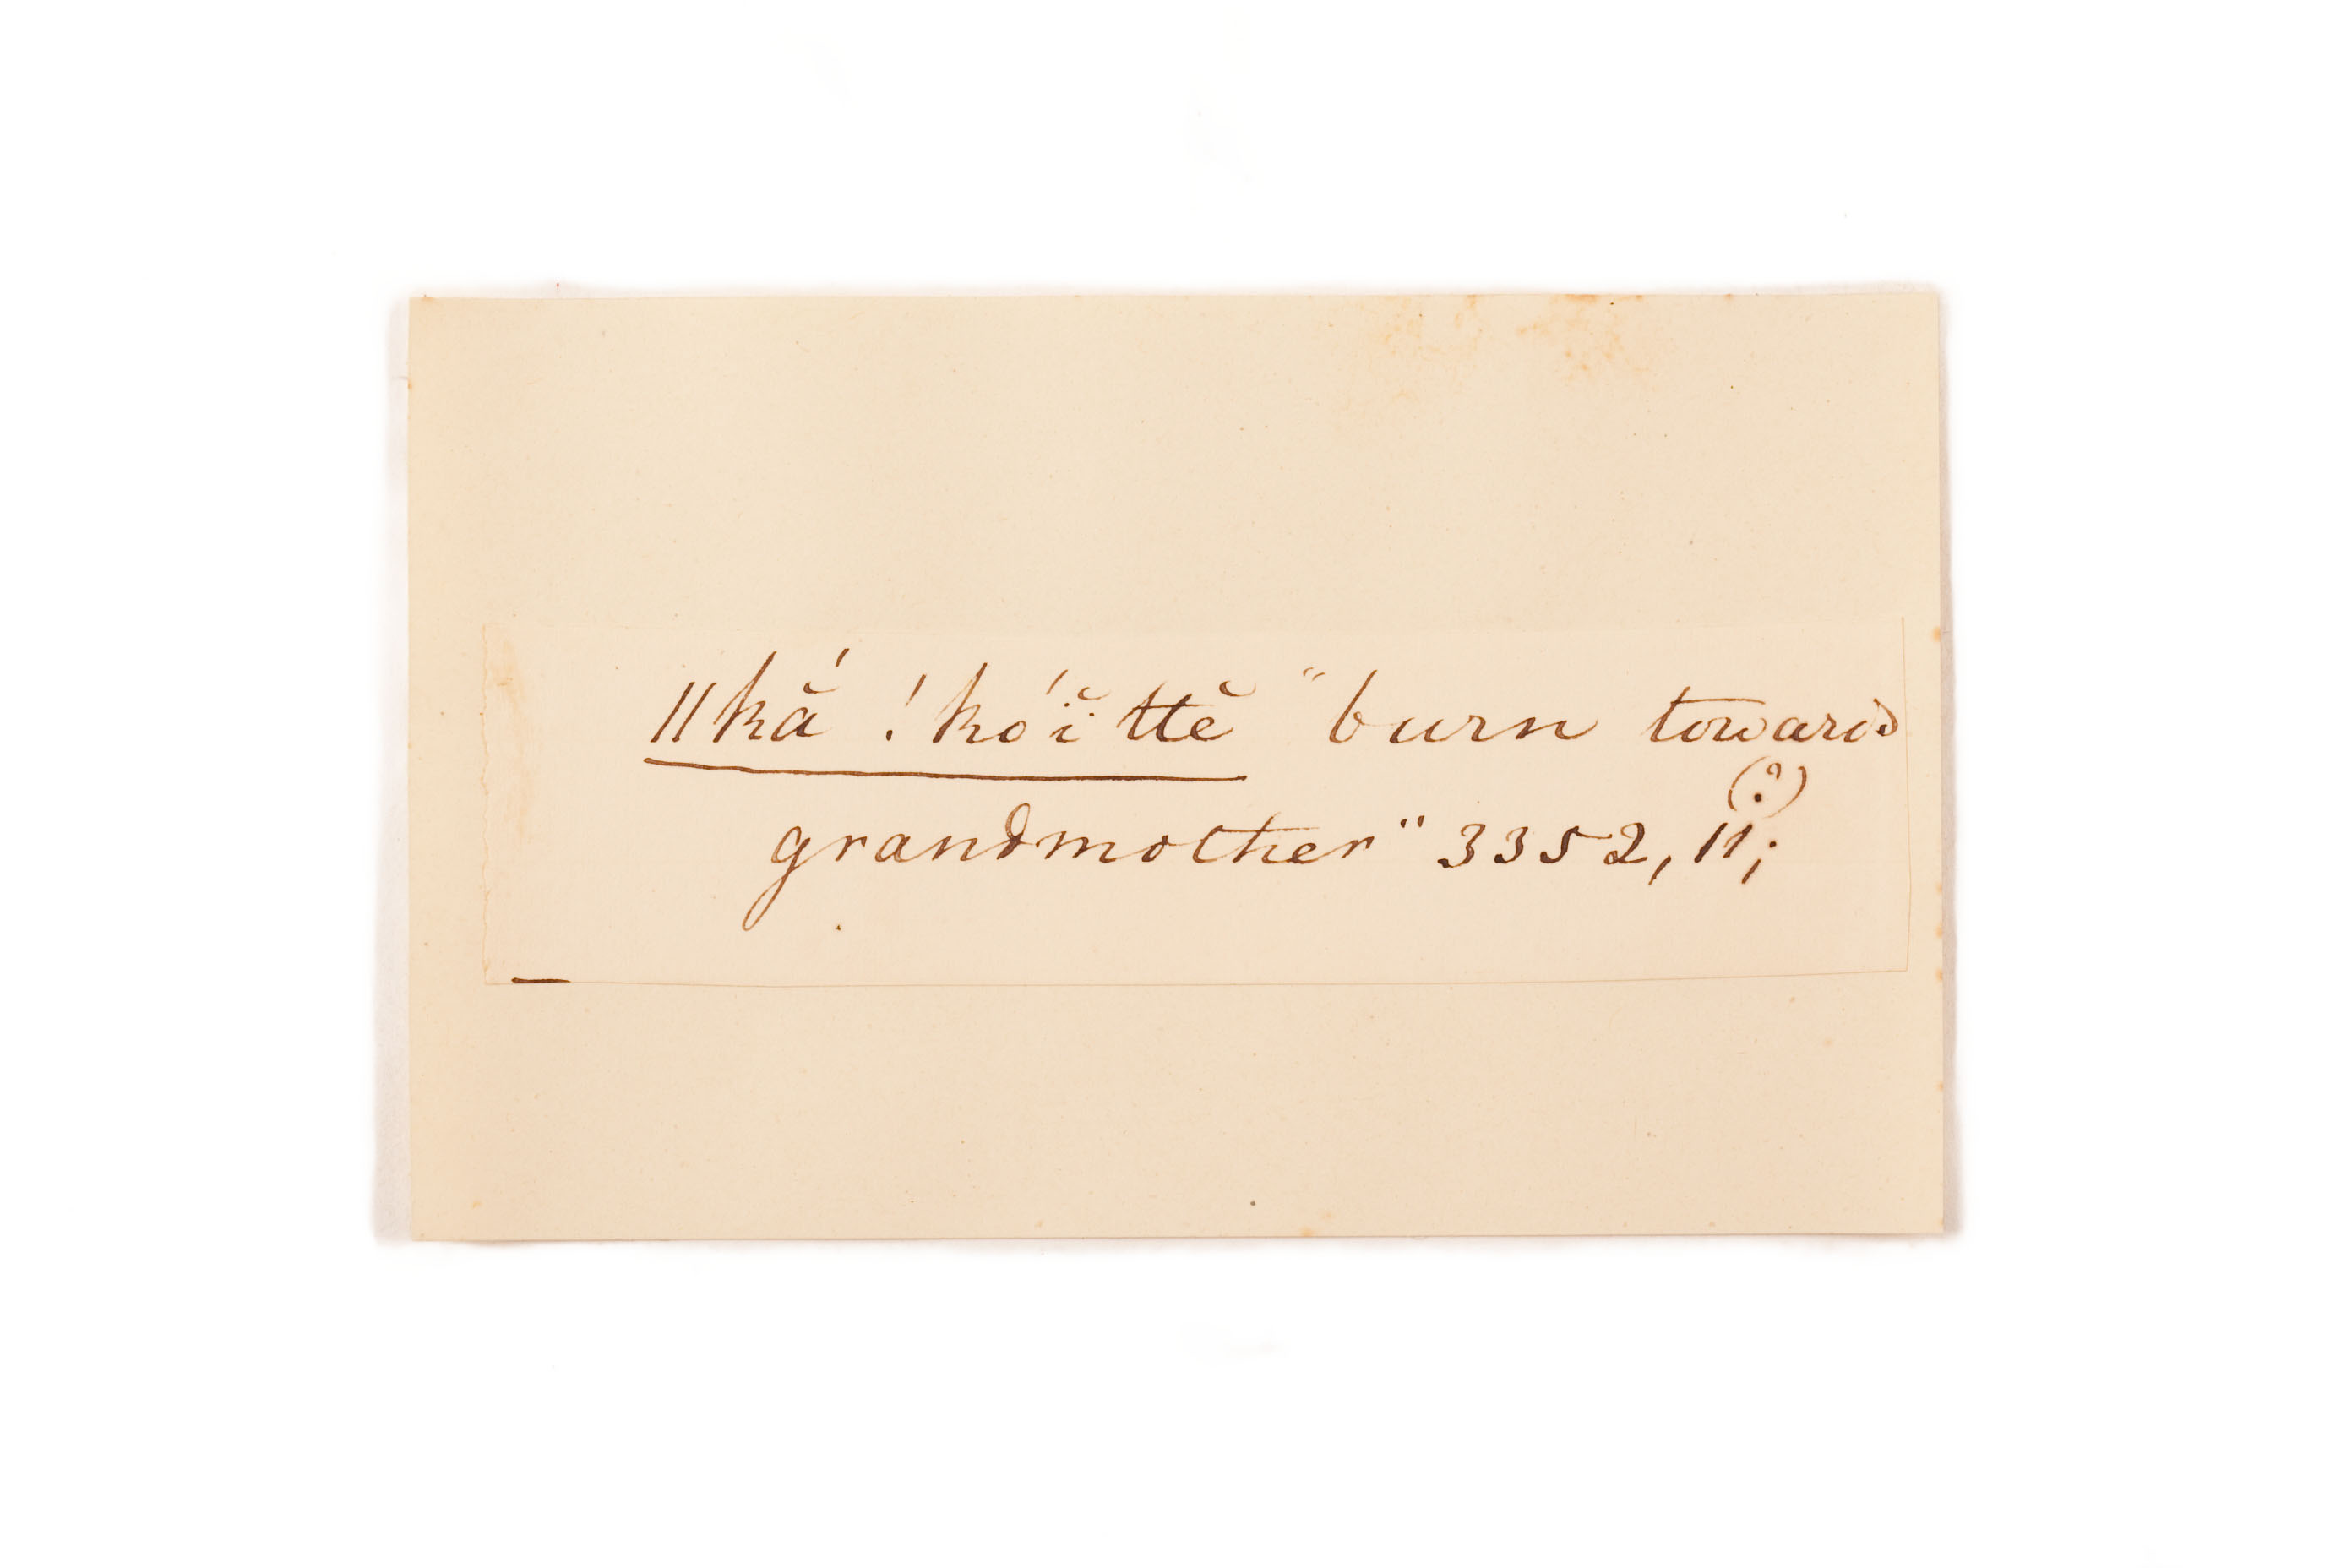 ǁkā̆́ !kóï̆ttĕ "burn towards
(?)
grandmother" 3352, 11;